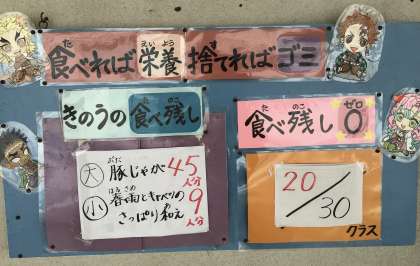 食べれば栄養捨てればゴミ
きのうの食べ残し
大 豚じゃが 45人分
小 春雨とキャベツの
さっぱり和え 9人分
食べ残し0
20/30
クラス